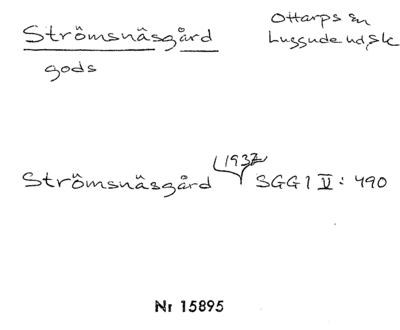 Strömsnäsgård
gods
Ottarps sn
Luggude hd, Sk
1937
Strömsnäsgård SGGI V: 490
Nr 15895